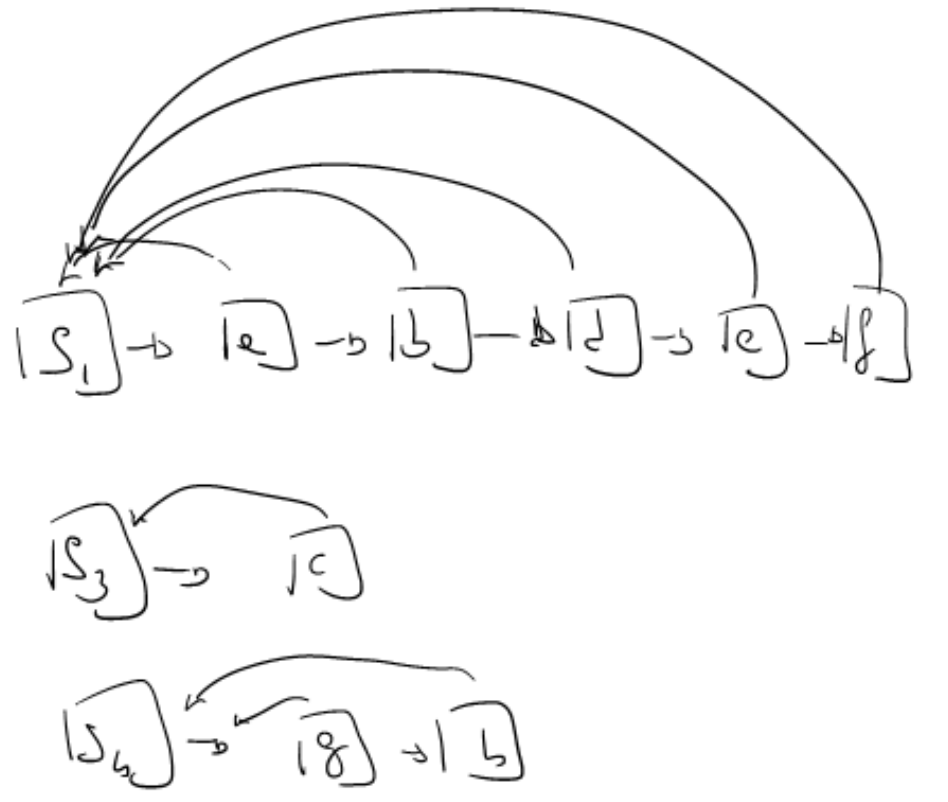 S₁ → a → b → d → e → f
S₃ → c
S₄ → g → h